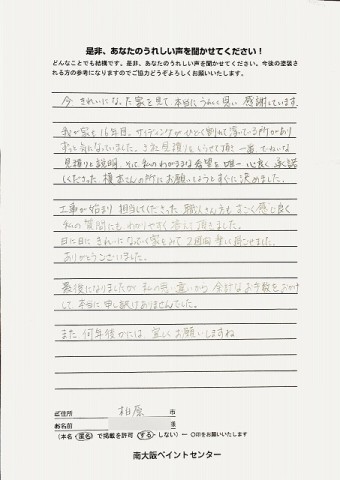 是非、あなたのうれしい声を聞かせてください！
どんなことでも結構です。是非、あなたのうれしい声を聞かせてください。今後の塗装さ
れる方の参考になりますのでご協力どうぞよろしくお願いいたします。
今 きれいになった家を見て、本当にうれしく思い 感謝しています。
我が家も16年目。サイディングがひどく割れて浮いてる所があり
ずっと気になっていました。3社見積りをとらせて頂き 一番 ていねいな
見積りと説明、そして私のわがままな希望を唯一 心良く 承諾
してくださった 榎本さんの所にお願いしようとすぐに決めました。
工事が始まり 担当してくださった 職人さん方も すごく感じ良く
私の質問にも わかりやすく 答えて頂きました。
日に日に きれいになっていく家をみて 2週間 幸せに過ごせました。
ありがとうございました。
最後になりましたが 私の思い違いから 余計なお手数をおかけ
して 本当に申し訳ありませんでした。
また 何年後かには 宜しくお願いしますね
ご住所 柏原 市
お名前 様
(本名・匿名)で掲載を許可(する・しない) ← ○印をお願いいたします
南大阪ペイントセンター